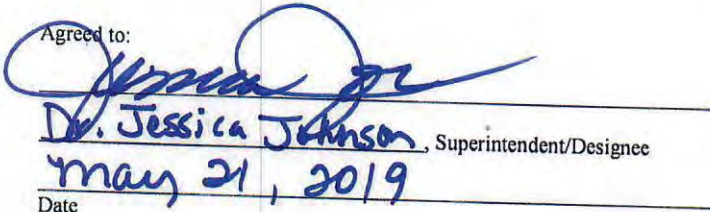 Agreed to:
Jessica
Dr. Jessica Johnson, Superintendent/Designee
May 21, 2019
Date